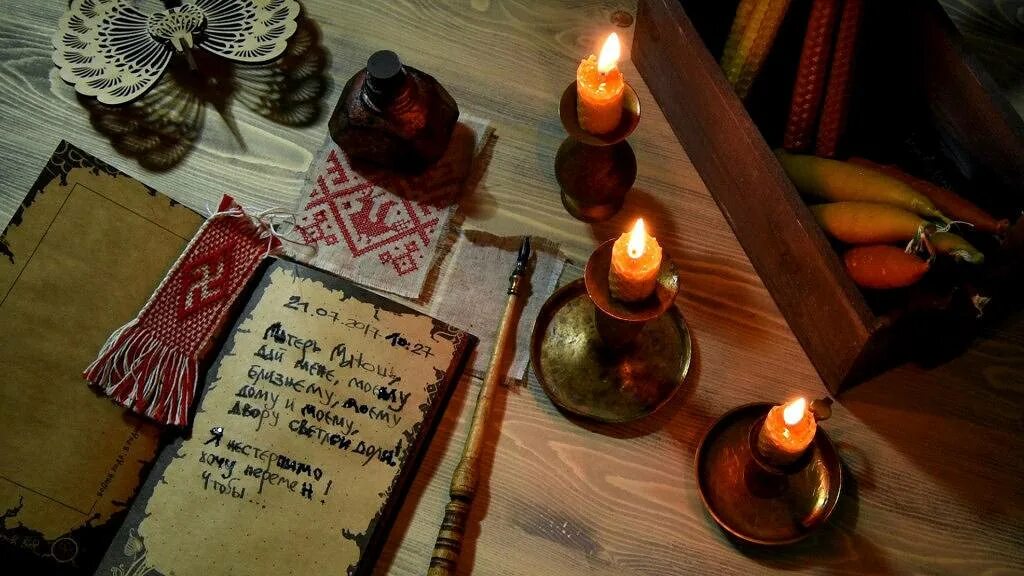 21.07.2017 10:27
Матерь Макошь,
дай мене, моему
ближнему, моему
дому и моему
двору светлой доли!
Я нестерпимо
хочу перемен!
Чтобы...